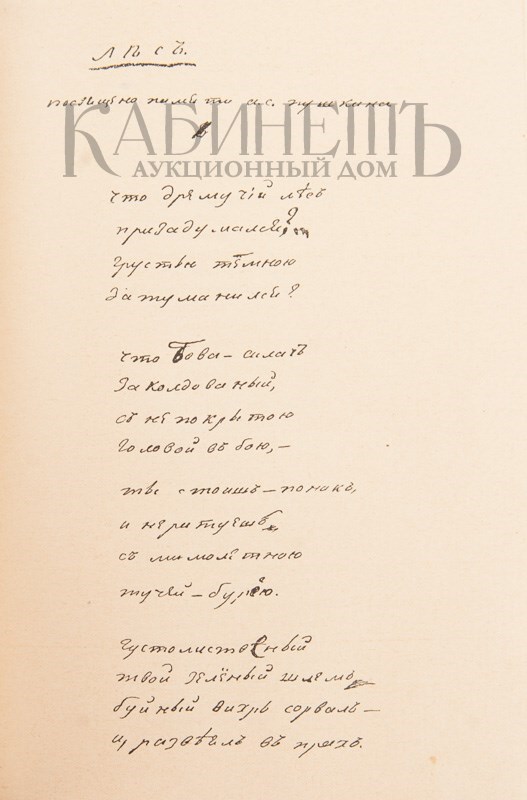 ЛѢСЪ.
посвящено памяти а.с. пушкина
КАБИНЕТЪ
АУКЦИОННЫЙ ДОМ
что дремучій лѣсъ
призадумался?
Грустью тёмною
затуманился?
что Бова-силачъ
Заколдованый,
съ непокрытою
Головой въ бою,-
ты стоишь-поникъ,
и не ратуешь
съ мимолётною
тучей-бурею.
Густолиственый
твой Зелёный шлемъ
буйный вихрь сорвалъ-
и развѣялъ въ прахъ.